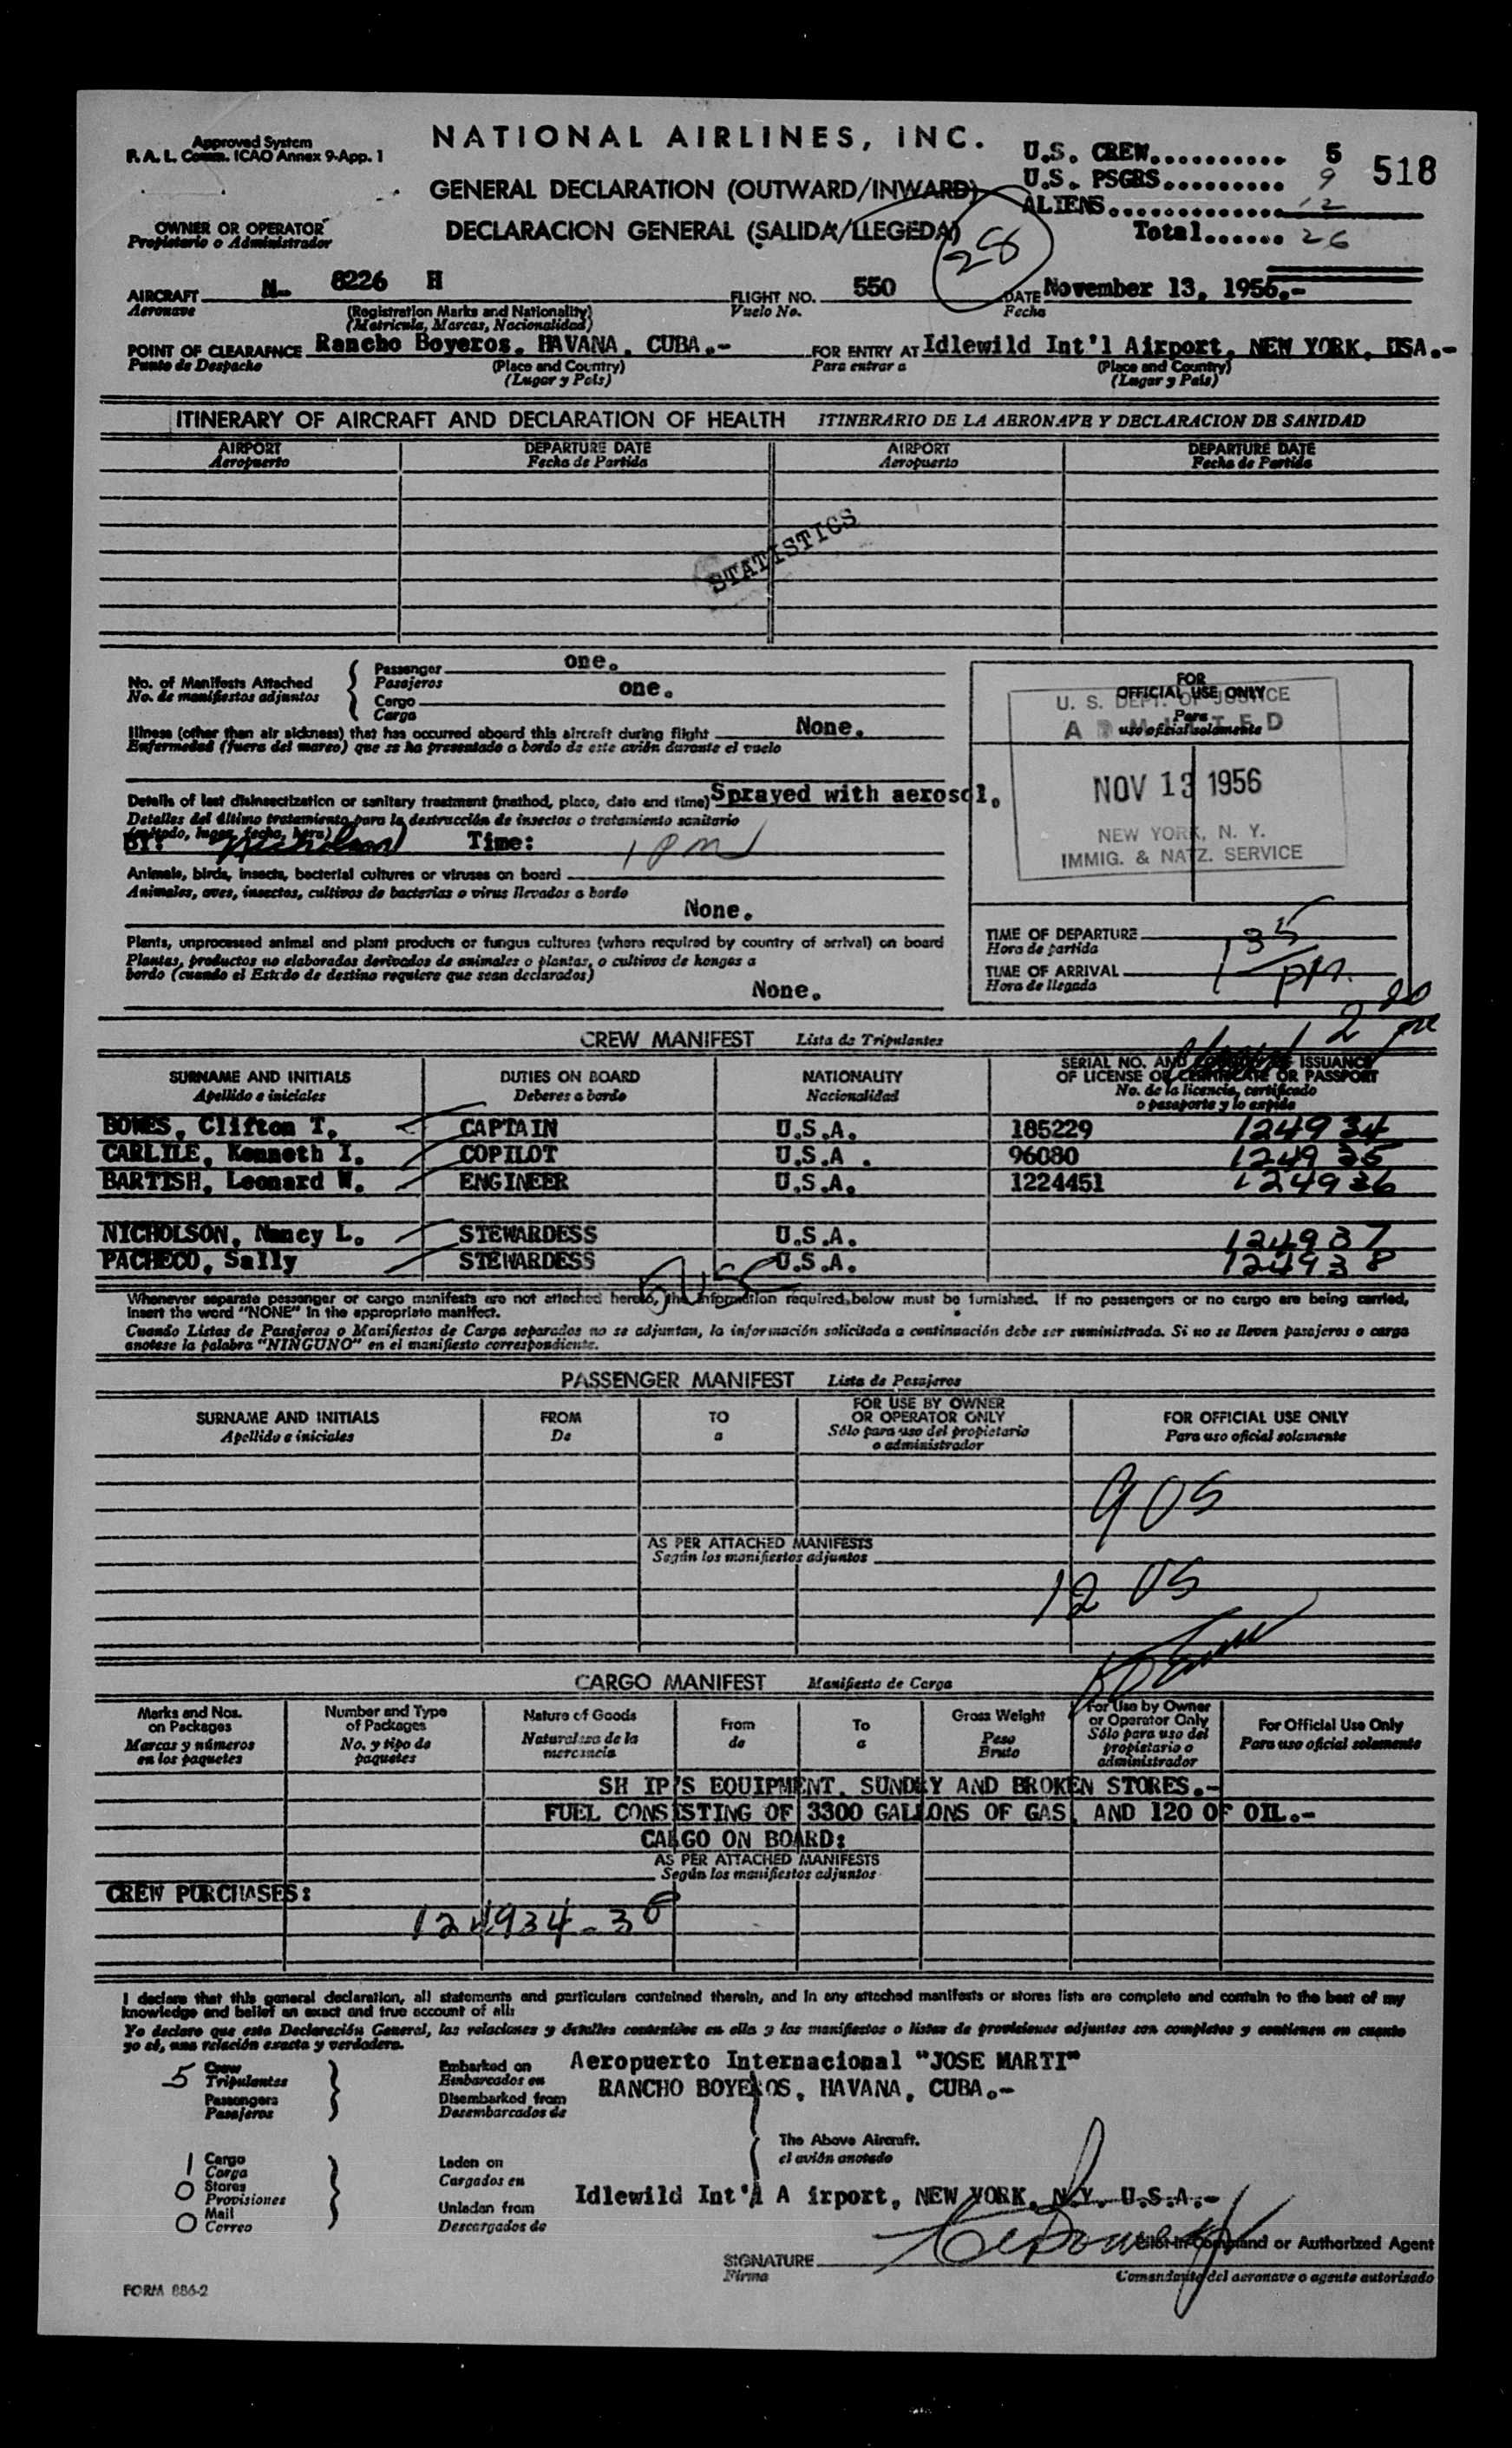 Approved System
F. A. L. Comm. ICAO Annex 9-App. 1
NATIONAL AIRLINES, INC.
GENERAL DECLARATION (OUTWARD/INWARD)
DECLARACION GENERAL (SALIDA/LLEGEDA)
U.S. CREW.......... 5
U.S. PSGRS......... 9
ALIENS............. 12
Total...... 26
518
26
OWNER OR OPERATOR
Propietario o Administrador
AIRCRAFT N- 8226 H FLIGHT NO. 550 DATE November 13, 1956.-
Aeronave (Registration Marks and Nationality) Vuelo No. Fecha
(Matricula, Marcas, Nacionalidad)
POINT OF CLEARAFNCE Rancho Boyeros, HAVANA, CUBA.- FOR ENTRY AT Idlewild Int'l Airport, NEW YORK, USA.-
Punto de Despacho (Place and Country) Para entrar a (Place and Country)
(Lugar y Pais) (Lugar y Pais)
ITINERARY OF AIRCRAFT AND DECLARATION OF HEALTH ITINERARIO DE LA AERONAVE Y DECLARACION DE SANIDAD
AIRPORT DEPARTURE DATE AIRPORT DEPARTURE DATE
Aeropuerto Fecha de Partida Aeropuerto Fecha de Partida
STATISTICS
No. of Manifests Attached
No. de manifiestos adjuntos
Passenger one.
Pasajeros
Cargo one.
Carga
Illness (other than air sickness) that has occurred aboard this aircraft during flight None.
Enfermedad (fuera del mareo) que se ha presentado a bordo de este avión durante el vuelo
Details of last disinsectization or sanitary treatment (method, place, date and time) Sprayed with aerosol.
Detalles del último tratamiento para la destrucción de insectos o tratamiento sanitario
(método, lugar, fecha, hora)
BY: Nicholson Time: 1 PM
Animals, birds, insects, bacterial cultures or viruses on board
Animales, aves, insectos, cultivos de bacterias o virus llevados a bordo
None.
Plants, unprocessed animal and plant products or fungus cultures (where required by country of arrival) on board
Plantas, productos no elaborados derivados de animales o plantas, o cultivos de hongos a
bordo (cuando el Estado de destino requiere que sean declarados)
None.
FOR
OFFICIAL USE ONLY
Para
uso oficial solamente
U. S. DEPT. OF JUSTICE
ADMITTED
NOV 13 1956
NEW YORK, N. Y.
IMMIG. & NATZ. SERVICE
TIME OF DEPARTURE
Hora de partida
TIME OF ARRIVAL
Hora de llegada
1 35 PM.
2 20
CREW MANIFEST Lista de Tripulantes
SURNAME AND INITIALS DUTIES ON BOARD NATIONALITY SERIAL NO. AND COUNTRY OF ISSUANCE
OF LICENSE OR CERTIFICATE OR PASSPORT
Apellido e iniciales Deberes a bordo Nacionalidad No. de la licencia, certificado
o pasaporte y lo expide
BOWES, Clifton T. CAPTAIN U.S.A. 185229 124934
CARLILE, Kenneth I. COPILOT U.S.A . 96080 124935
BARTISH, Leonard W. ENGINEER U.S.A. 1224451 124936
NICHOLSON, Nancy L. STEWARDESS U.S.A. 124937
PACHECO, Sally STEWARDESS U.S.A. 124938
5 USC
Whenever separate passenger or cargo manifests are not attached hereto, the information required below must be furnished. If no passengers or no cargo are being carried,
insert the word "NONE" in the appropriate manifect.
Cuando Listas de Pasajeros o Manifiestos de Carga separados no se adjuntan, la información solicitada a continuación debe ser suministrada. Si no se lleven pasajeros o carga
anotese la palabra "NINGUNO" en el manifiesto correspondiente.
PASSENGER MANIFEST Lista de Pasajeros
SURNAME AND INITIALS FROM TO FOR USE BY OWNER
OR OPERATOR ONLY FOR OFFICIAL USE ONLY
Apellido e iniciales De a Sólo para uso del propietario
o administrador Para uso oficial solamente
905
AS PER ATTACHED MANIFESTS
Según los manifiestos adjuntos
12 05
CARGO MANIFEST Manifiesto de Carga
Marks and Nos.
on Packages
Marcas y números
en los paquetes
Number and Type
of Packages
No. y tipo de
paquetes
Nature of Goods
Naturaleza de la
mercancia
From
de
To
a
Gross Weight
Peso
Bruto
For Use by Owner
or Operator Only
Sólo para uso del
propietario o
administrador
For Official Use Only
Para uso oficial solamente
SH IP'S EQUIPMENT, SUNDRY AND BROKEN STORES.-
FUEL CONSISTING OF 3300 GALLONS OF GAS, AND 120 OF OIL.-
CARGO ON BOARD:
AS PER ATTACHED MANIFESTS
Según los manifiestos adjuntos
CREW PURCHASES:
124934-38
I declare that this general declaration, all statements and particulars contained therein, and in any attached manifests or stores lists are complete and contain to the best of my
knowledge and belief an exact and true account of all:
Yo declaro que esta Declaración General, las relaciones y detalles contenidos en ella y los manifiestos o listas de provisiones adjuntos son completos y contienen en cuanto
yo sé, una relación exacta y verdadera.
5 Crew
Tripulantes
Passengers
Pasajeros
Embarked on
Embarcados en
Disembarked from
Desembarcados de
Aeropuerto Internacional "JOSE MARTI"
RANCHO BOYEROS, HAVANA, CUBA.-
The Above Aircraft.
el avión anotado
1 Cargo
Carga
0 Stores
Provisiones
0 Mail
Correo
Laden on
Cargados en
Unladen from
Descargados de
Idlewild Int'l A irport, NEW YORK, N.Y. U.S.A.-
SIGNATURE
Firma
Pilot-in-Command or Authorized Agent
Comandante del aeronave o agente autorizado
FORM 886-2